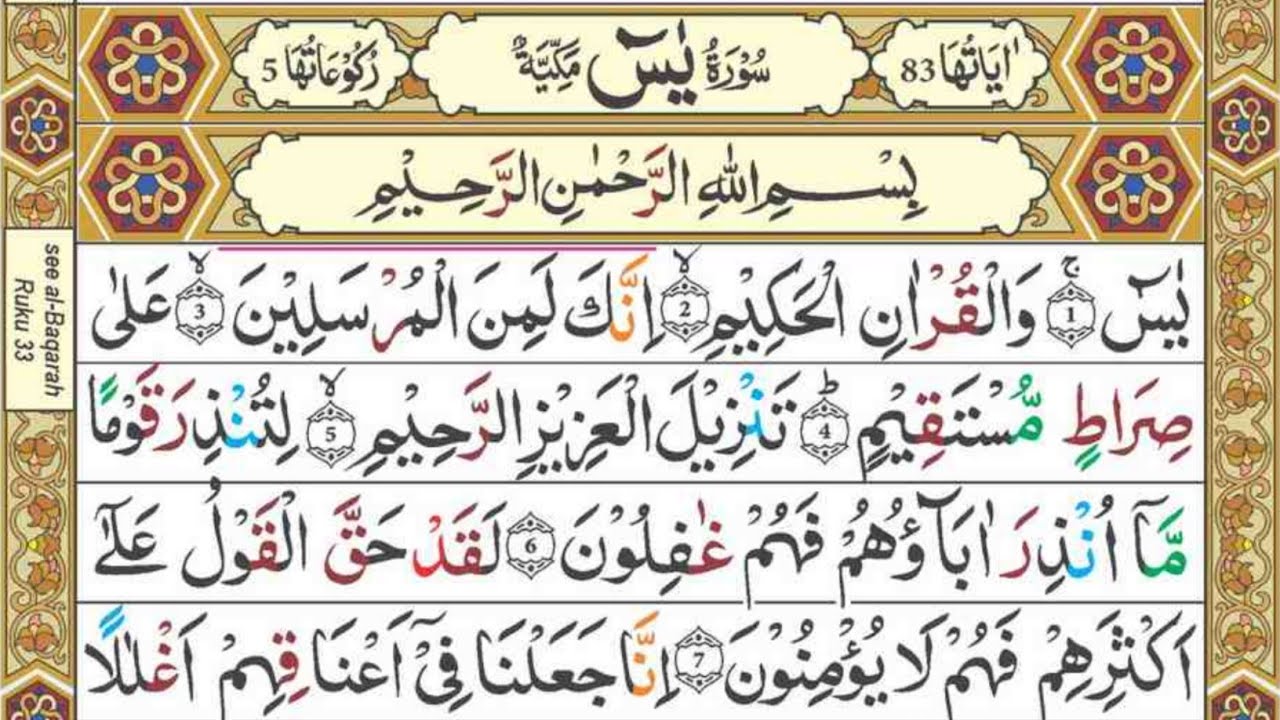 اٰيَاتُهَا 83 سُوْرَةُ يٰسٓ مَكِّيَّةٌ رُكُوْعَاتُهَا 5
بِسْمِ اللهِ الرَّحْمٰنِ الرَّحِيْمِ
يٰسٓ ۚ 1 وَالْقُرْاٰنِ الْحَكِيْمِ ۙ 2 اِنَّكَ لَمِنَ الْمُرْسَلِيْنَ ۙ 3 عَلٰى
صِرَاطٍ مُّسْتَقِيْمٍ ؕ 4 تَنْزِيْلَ الْعَزِيْزِ الرَّحِيْمِ ۙ 5 لِتُنْذِرَ قَوْمًا
مَّاۤ اُنْذِرَ اٰبَآؤُهُمْ فَهُمْ غٰفِلُوْنَ 6 لَقَدْ حَقَّ الْقَوْلُ عَلٰۤى
اَكْثَرِهِمْ فَهُمْ لَا يُؤْمِنُوْنَ 7 اِنَّا جَعَلْنَا فِىْۤ اَعْنَاقِهِمْ اَغْلٰلًا
see al-Baqarah
Ruku 33